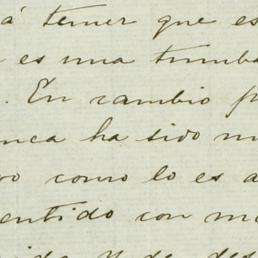 á temer que es
es una tumba
. En cambio p
nca ha sido m
o como lo es a
entido con m